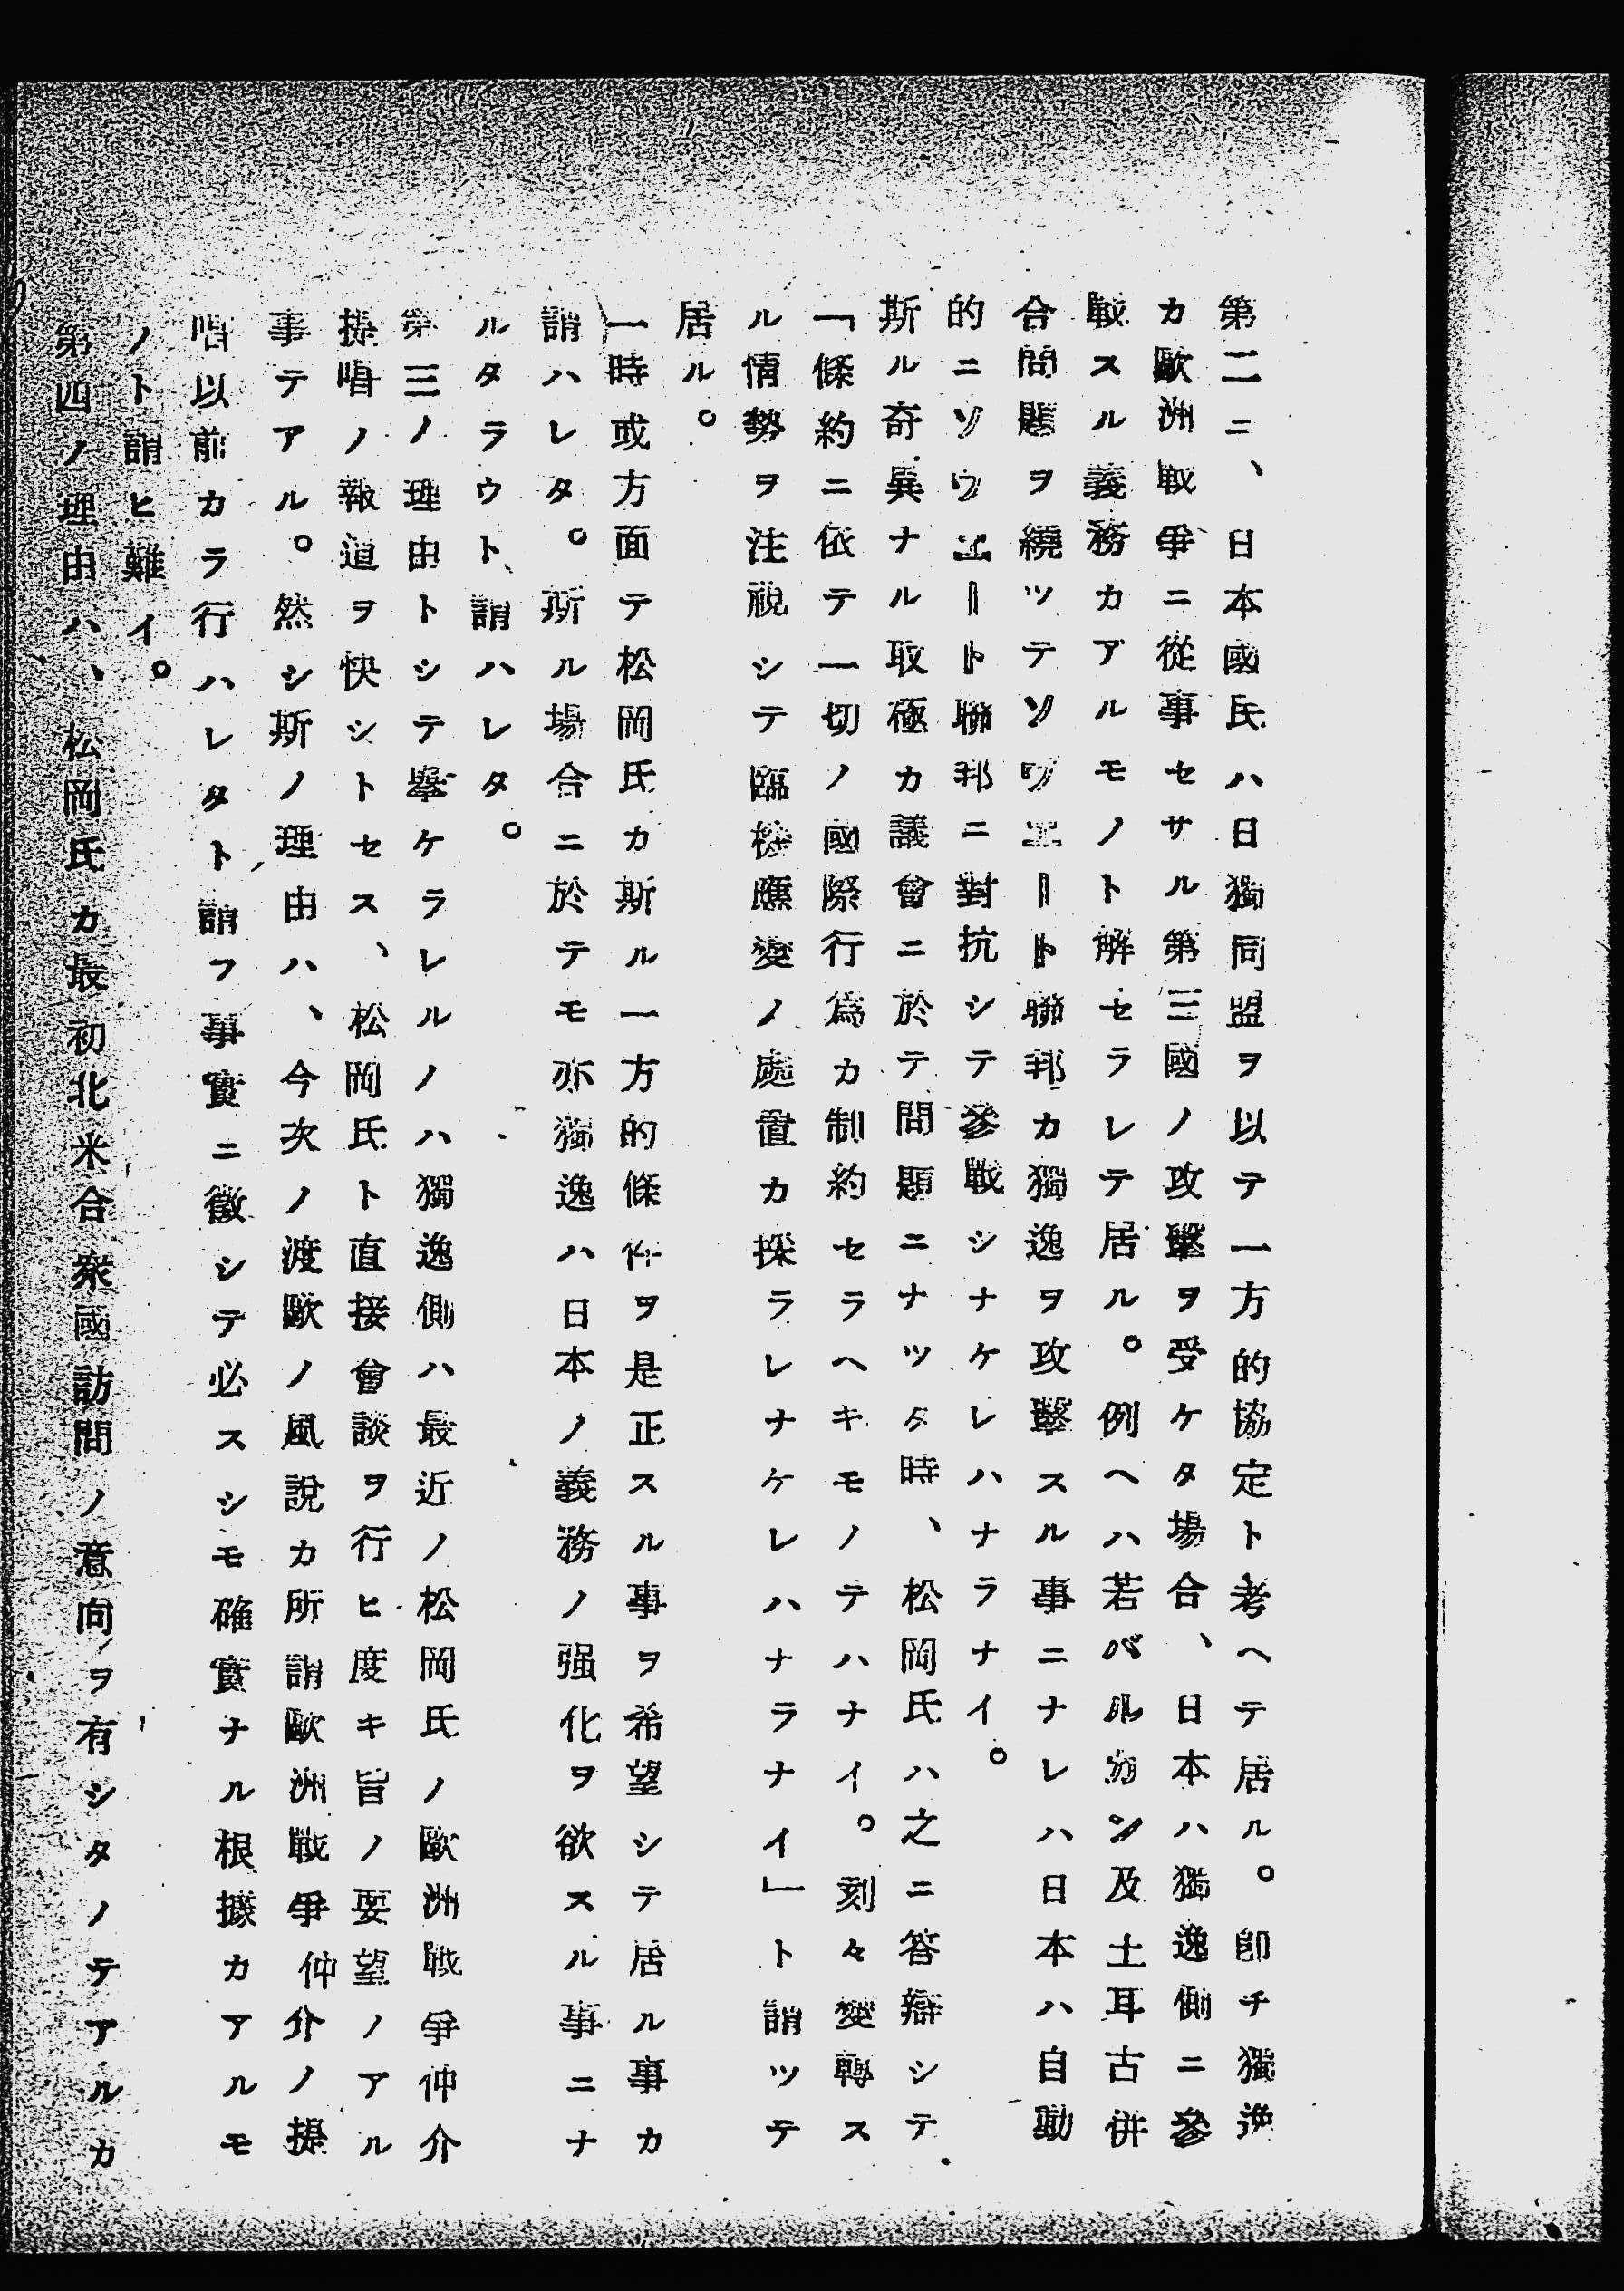 第二ニ、日本國民ハ日獨同盟ヲ以テ一方的協定ト考ヘテ居ル。卽チ獨逸
カ歐洲戰爭ニ從事セサル第三國ノ攻擊ヲ受ケタ場合、日本ハ獨逸側ニ參
戰スル義務カアルモノト解セラレテ居ル。例ヘハ若バルカン及土耳古併
合問題ヲ繞ツテソヴエート聯邦カ獨逸ヲ攻擊スル事ニナレハ日本ハ自動
的ニソヴエート聯邦ニ對抗シテ參戰シナケレハナラナイ。
斯ル奇異ナル取極カ議會ニ於テ問題ニナツタ時、松岡氏ハ之ニ答辯シテ
「條約ニ依テ一切ノ國際行爲カ制約セラヘキモノテハナイ。刻々變轉ス
ル情勢ヲ注視シテ臨機應變ノ處置カ採ラレナケレハナラナイ」ト謂ツテ
居ル。
一時或方面テ松岡氏カ斯ル一方的條件ヲ是正スル事ヲ希望シテ居ル事カ
謂ハレタ。斯ル場合ニ於テモ亦獨逸ハ日本ノ義務ノ强化ヲ欲スル事ニナ
ルタラウト謂ハレタ。
第三ノ理由トシテ擧ケラレルノハ獨逸側ハ最近ノ松岡氏ノ歐洲戰爭仲介
提唱ノ報道ヲ快シトセス、松岡氏ト直接會談ヲ行ヒ度キ旨ノ要望ノアル
事テアル。然シ斯ノ理由ハ、今次ノ渡歐ノ風說カ所謂歐洲戰爭仲介ノ提
唱以前カラ行ハレタト謂フ事實ニ徵シテ必スシモ確實ナル根據カアルモ
ノト謂ヒ難イ。
第四ノ理由ハ、松岡氏カ最初北米合衆國訪問ノ意向ヲ有シタノテアルカ